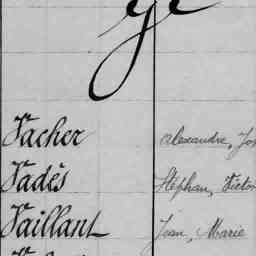 Vacher Alexandre, Jos
Vadès Stéphan, Victor
Vaillant Jean, Marie